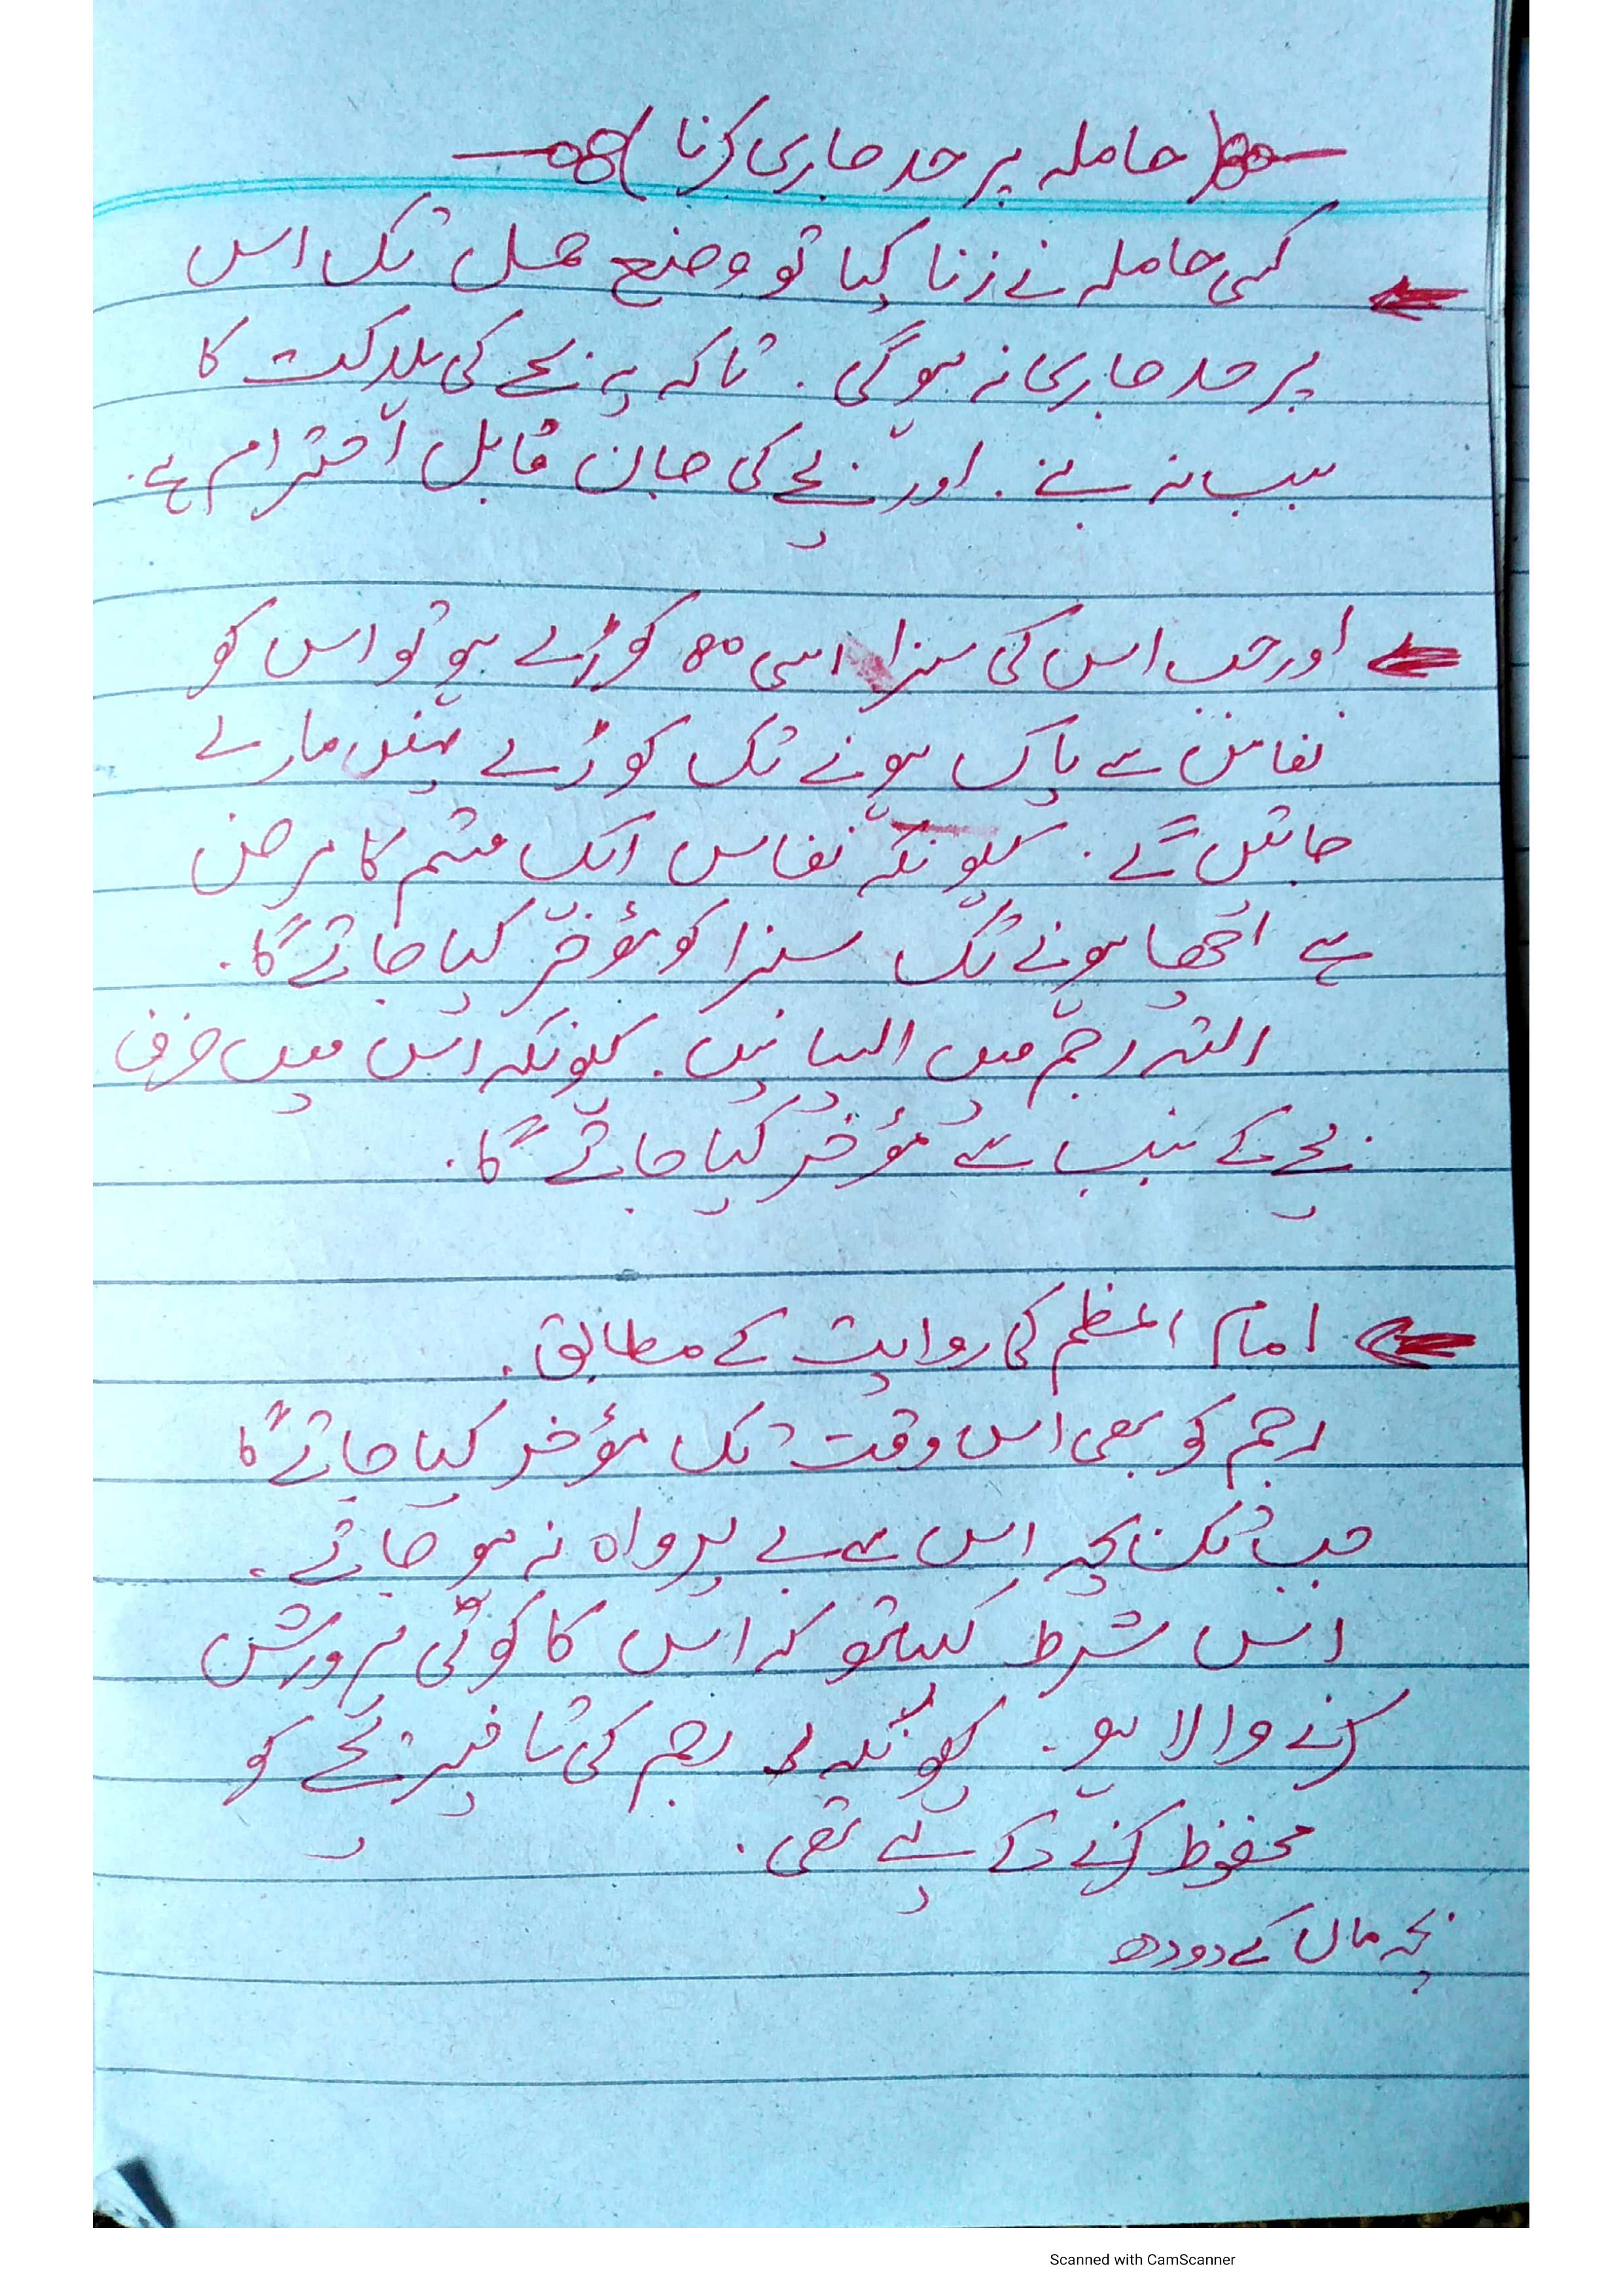 (حاملہ پر حد جاری کرنا)
کسی حاملہ نے زنا کیا تو وضع حمل تک اس
پر حد جاری نہ ہوگی۔ تاکہ یہ بچے کی ہلاکت کا
سبب نہ بنے۔ اور بچے کی جان قابل احترام ہے۔
اور جب اس کی سزا اسی 80 کوڑے ہو تو اس کو
نفاس سے پاک ہونے تک کوڑے نہیں مارے
جائیں گے۔ کیونکہ نفاس ایک قسم کا مرض
ہے اچھا ہونے تک سزا کو مؤخر کیا جائے گا۔
البتہ رجم میں ایسا نہیں۔ کیونکہ اس میں صرف
بچے کے سبب سے مؤخر کیا جائے گا۔
امام اعظم کی روایت کے مطابق۔
رجم کو بھی اس وقت تک مؤخر کیا جائے گا
جب تک بچہ اس سے بے پرواہ نہ ہو جائے۔
اس شرط کیساتھ کہ اس کا کوئی پرورش
کرنے والا ہو۔ کیونکہ رجم کی تاخیر بچے کو
محفوظ کرنے کے لیے تھی۔
بچہ ماں کے دودھ
Scanned with CamScanner